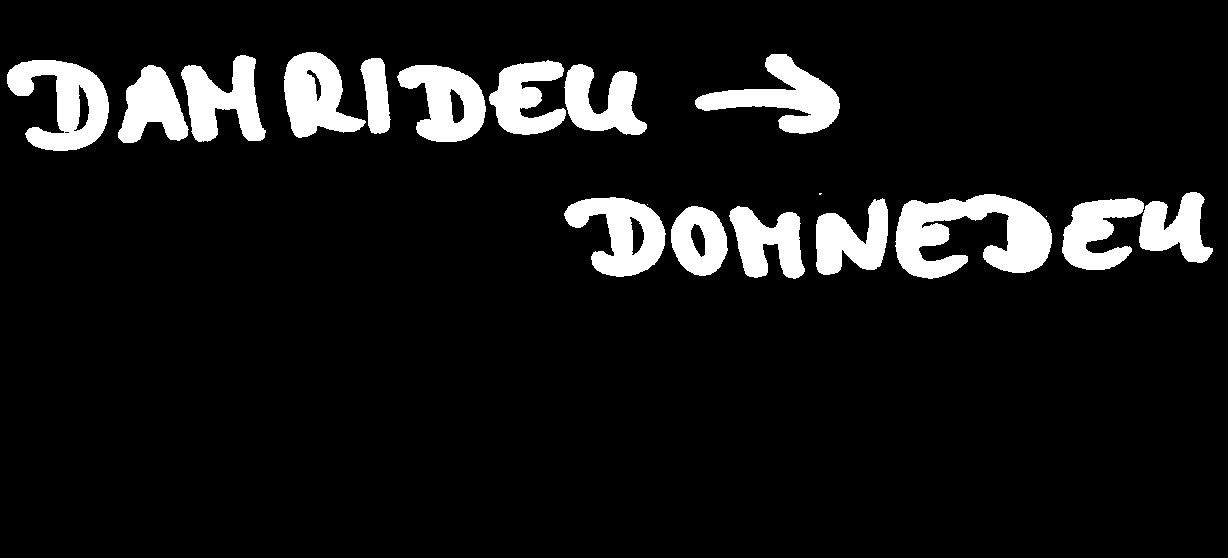 DAMRIDEU →
DOMNEDEU